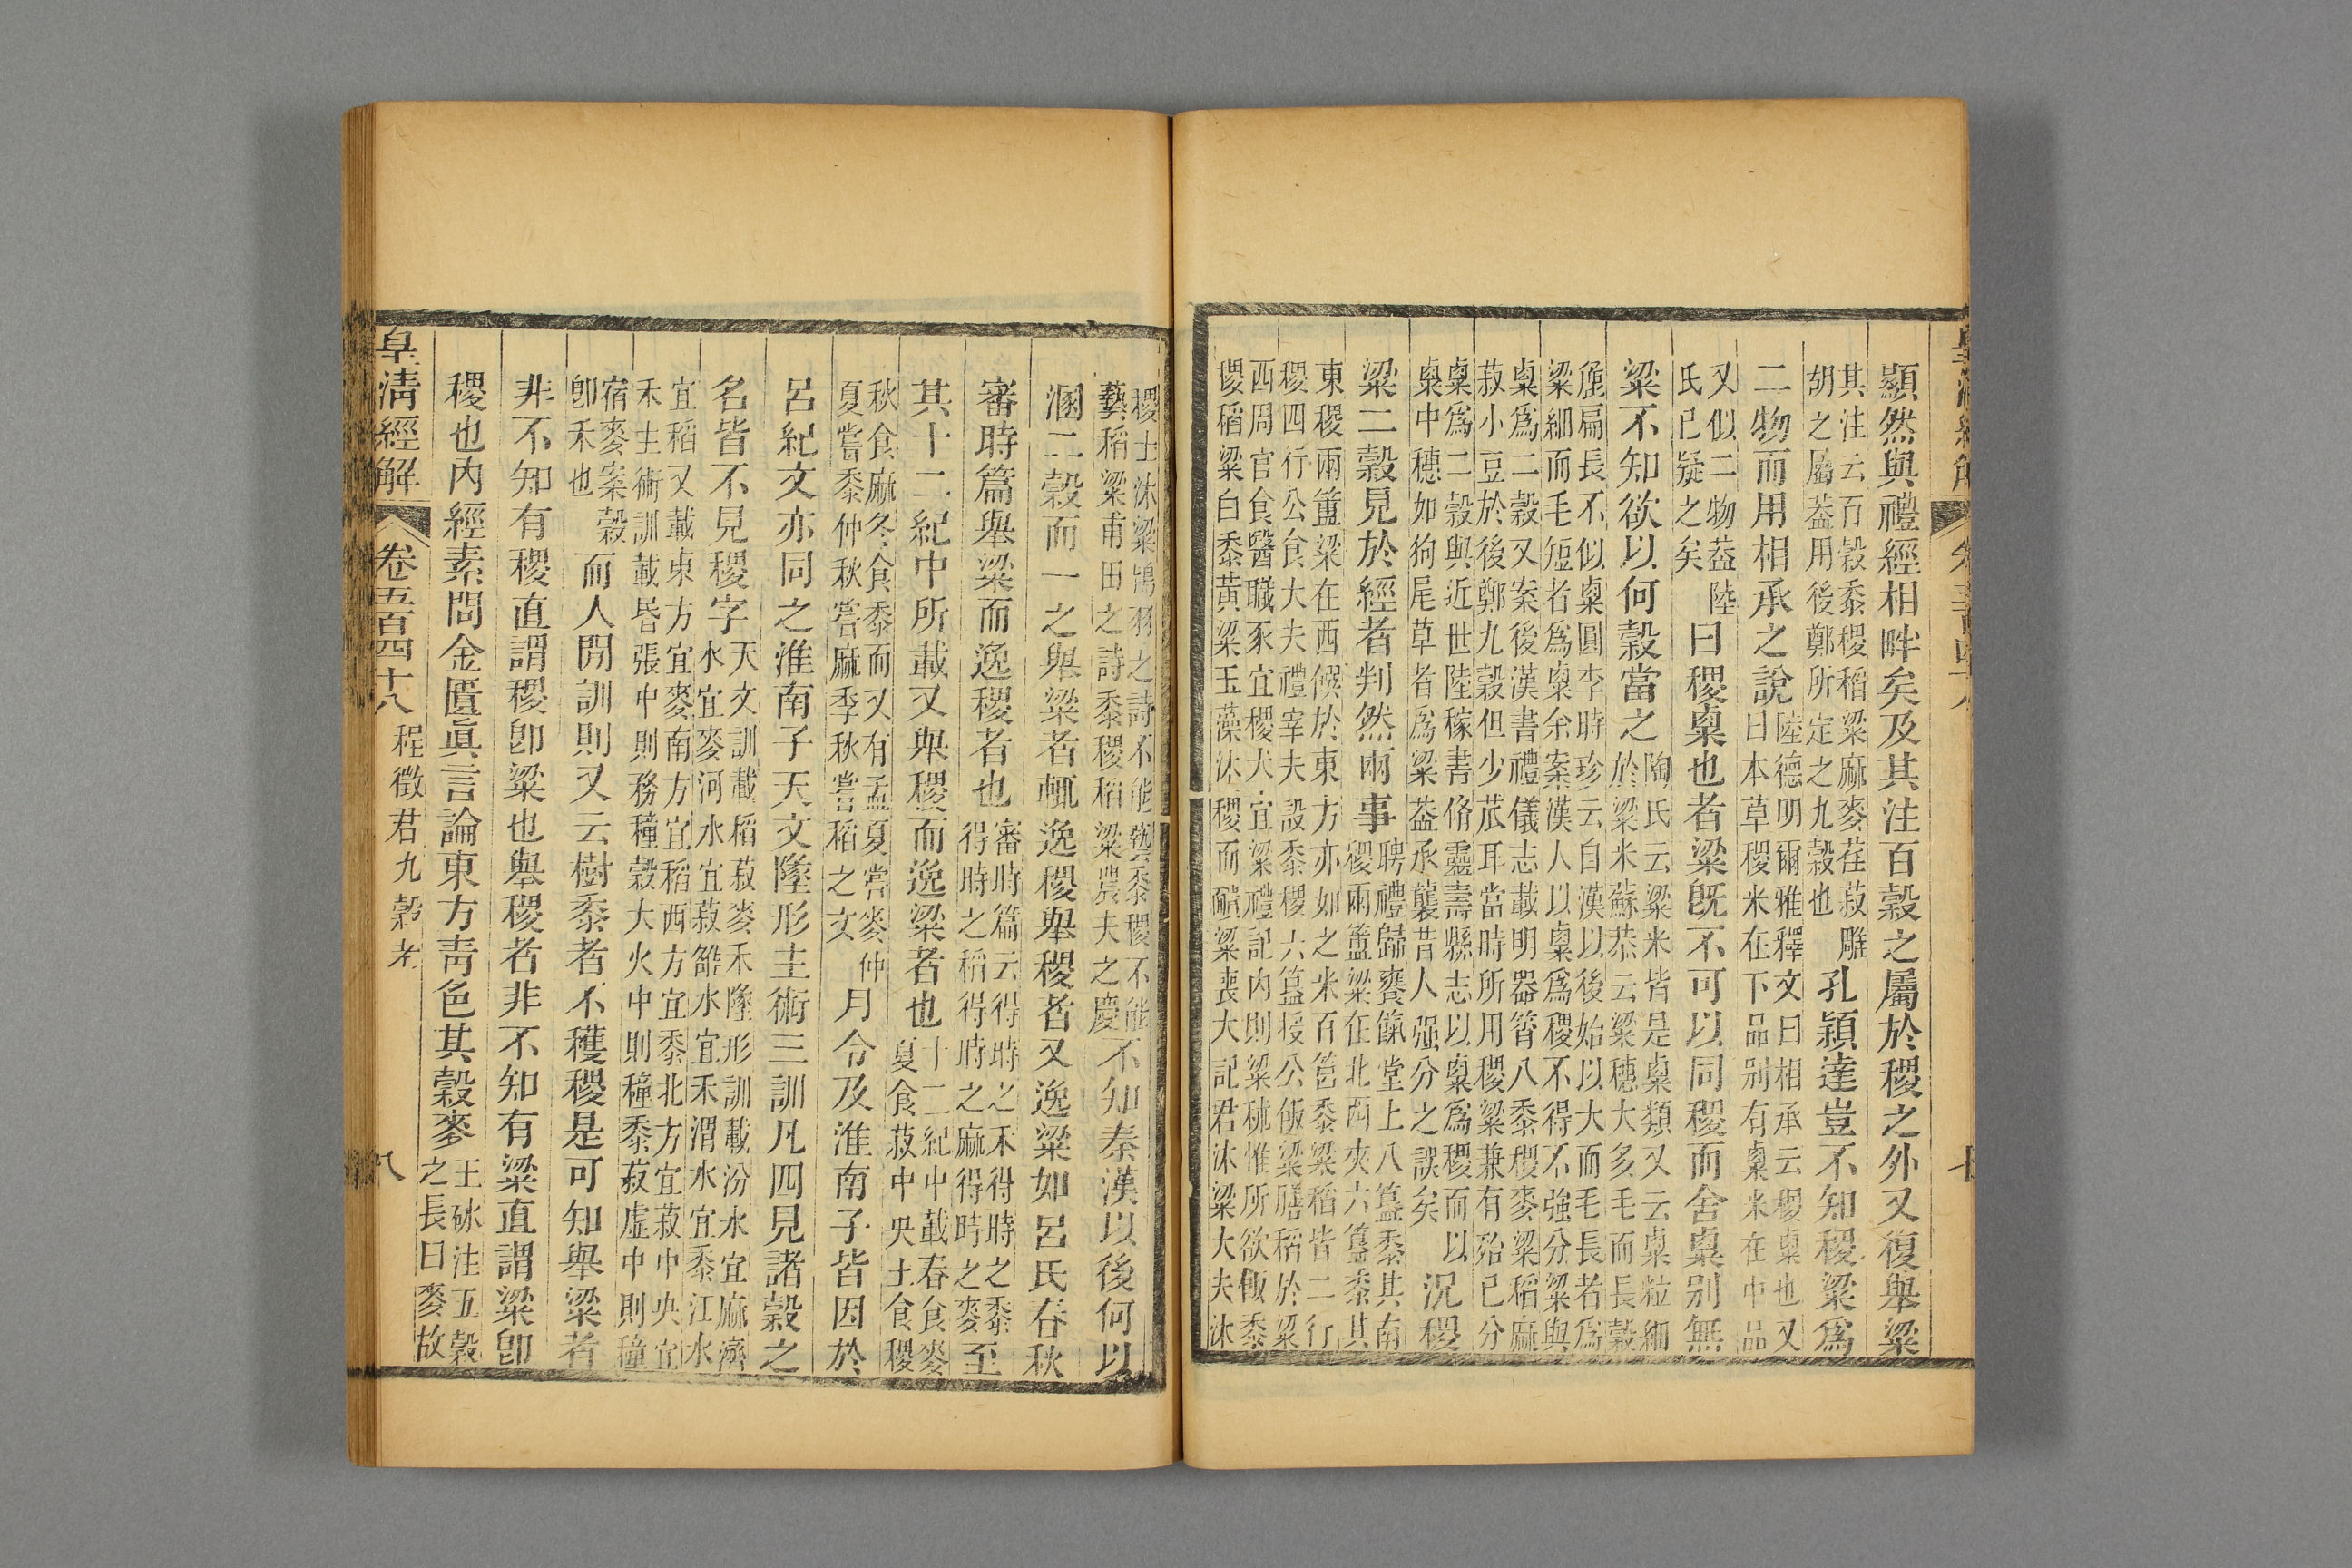 顯然與禮經相畔矣及其注百穀之屬於稷之外又復舉粱
其注云百穀黍稷稻粱麻麥荏菽雕
胡之屬葢用後鄭所定之九穀也
孔穎達豈不知稷粱爲
二物而用相承之說
陸德明爾雅釋文曰相承云稷粟也又
曰本草稷米在下品别有粟米在中品
又似二物葢陸
氏已疑之矣
曰稷粟也者粱旣不可以同稷而舍粟别無
粱不知欲以何穀當之
陶氏云粱米皆是粟類又云粟粒細
於粱米蘇恭云粱穗大多毛而長穀
麤扁長不似粟圓李時珍云自漢以後始以大而毛長者爲
粱細而毛短者爲粟余案漢人以粟爲稷不得不強分粱與
粟爲二穀又案後漢書禮儀志載明器筲八黍稷麥粱稻麻
菽小豆於後鄭九穀但少苽耳當時所用稷粱兼有殆已分
粟爲二穀與近世陸稼書脩靈壽縣志以粟爲稷而以
粟中穗如狗尾草者爲粱葢承襲昔人强分之誤矣
況稷
粱二穀見於經者判然兩事
聘禮歸饔餼堂上八簋黍其南
稷兩簠粱在北西夾六簋黍其
東稷兩簠粱在西饌於東方亦如之米百筥黍粱稻皆二行
稷四行公食大夫禮宰夫設黍稷六簋授公飯粱膳稻於粱
西周官食醫職豕宜稷犬宜粱禮記内則粱秫惟所欲飯黍
稷稻粱白黍黃粱玉藻沐稷而靧粱喪大記君沐粱大夫沐
稷士沐粱鴇羽之詩不能藝黍稷不能
藝稻粱甫田之詩黍稷稻粱農夫之慶
不知秦漢以後何以
溷二穀而一之舉粱者輒逸稷舉稷者又逸粱如呂氏春秋
審時篇舉粱而逸稷者也
審時篇云得時之禾得時之黍
得時之稻得時之麻得時之麥至
其十二紀中所載又舉稷而逸粱者也
十二紀中載春食麥
夏食菽中央土食稷
秋食麻冬食黍而又有孟夏嘗麥仲
夏嘗黍仲秋嘗麻季秋嘗稻之文
月令及淮南子皆因於
呂紀文亦同之淮南子天文墬形主術三訓凡四見諸穀之
名皆不見稷字
天文訓載稻菽麥禾墬形訓載汾水宜麻濟
水宜麥河水宜菽雒水宜禾渭水宜黍江水
宜稻又載東方宜麥南方宜稻西方宜黍北方宜菽中央宜
禾主術訓載昏張中則務種穀大火中則種黍菽虛中則種
宿麥案穀
卽禾也
而人閒訓則又云樹黍者不穫稷是可知舉粱者
非不知有稷直謂稷卽粱也舉稷者非不知有粱直謂粱卽
稷也内經素問金匱眞言論東方靑色其穀麥
王砅注五穀
之長曰麥故
皇清經解 卷五百四十八 程徵君九穀考 八